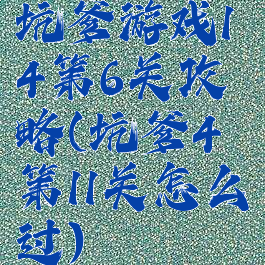 坑爹游戏1
4第6关攻
略(坑爹4
第11关怎么
过)